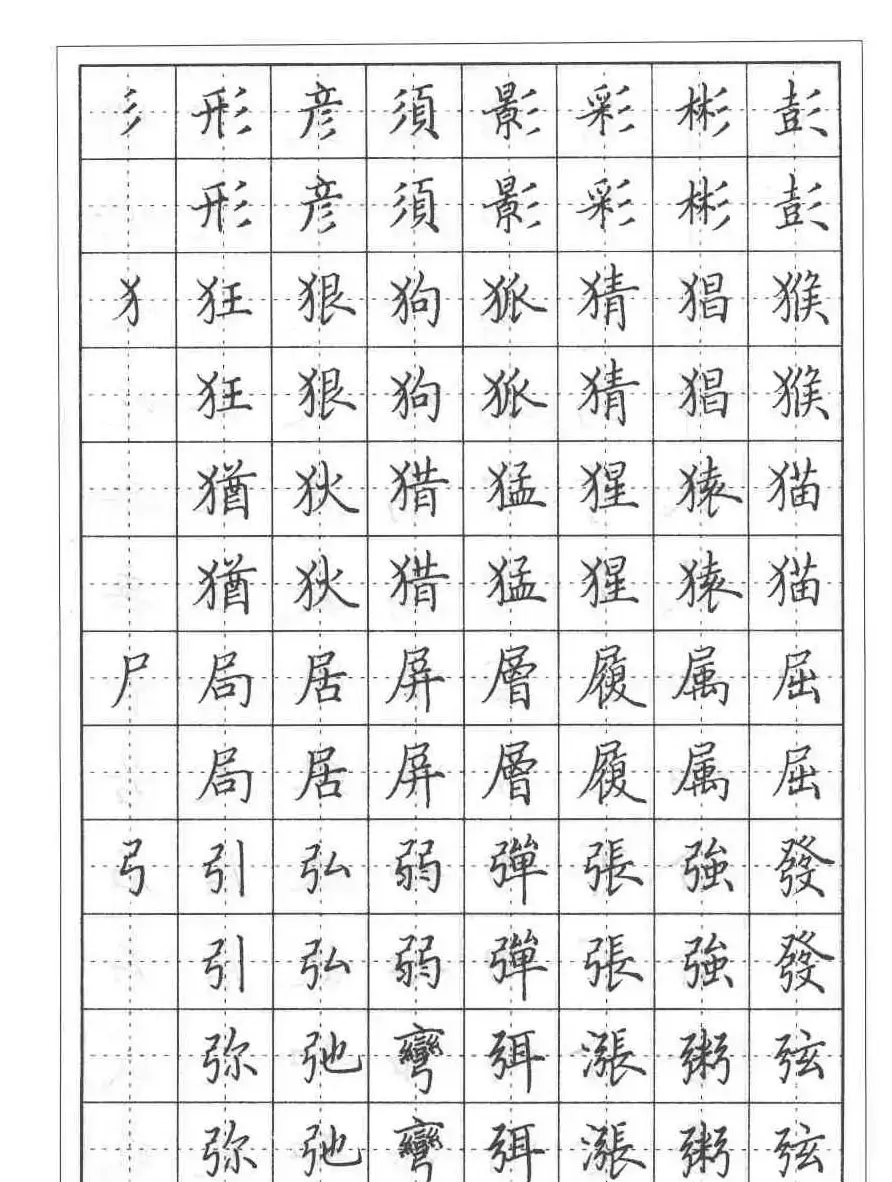 彡 形 彦 須 影 彩 彬 彭
形 彦 須 影 彩 彬 彭
犭 狂 狠 狗 狐 猜 猖 猴
狂 狠 狗 狐 猜 猖 猴
猶 狄 猎 猛 猩 猿 猫
猶 狄 猎 猛 猩 猿 猫
尸 局 居 屏 層 履 属 屈
局 居 屏 層 履 属 屈
弓 引 弘 弱 彈 張 強 發
引 弘 弱 彈 張 強 發
弥 弛 彎 弭 漲 粥 弦
弥 弛 彎 弭 漲 粥 弦